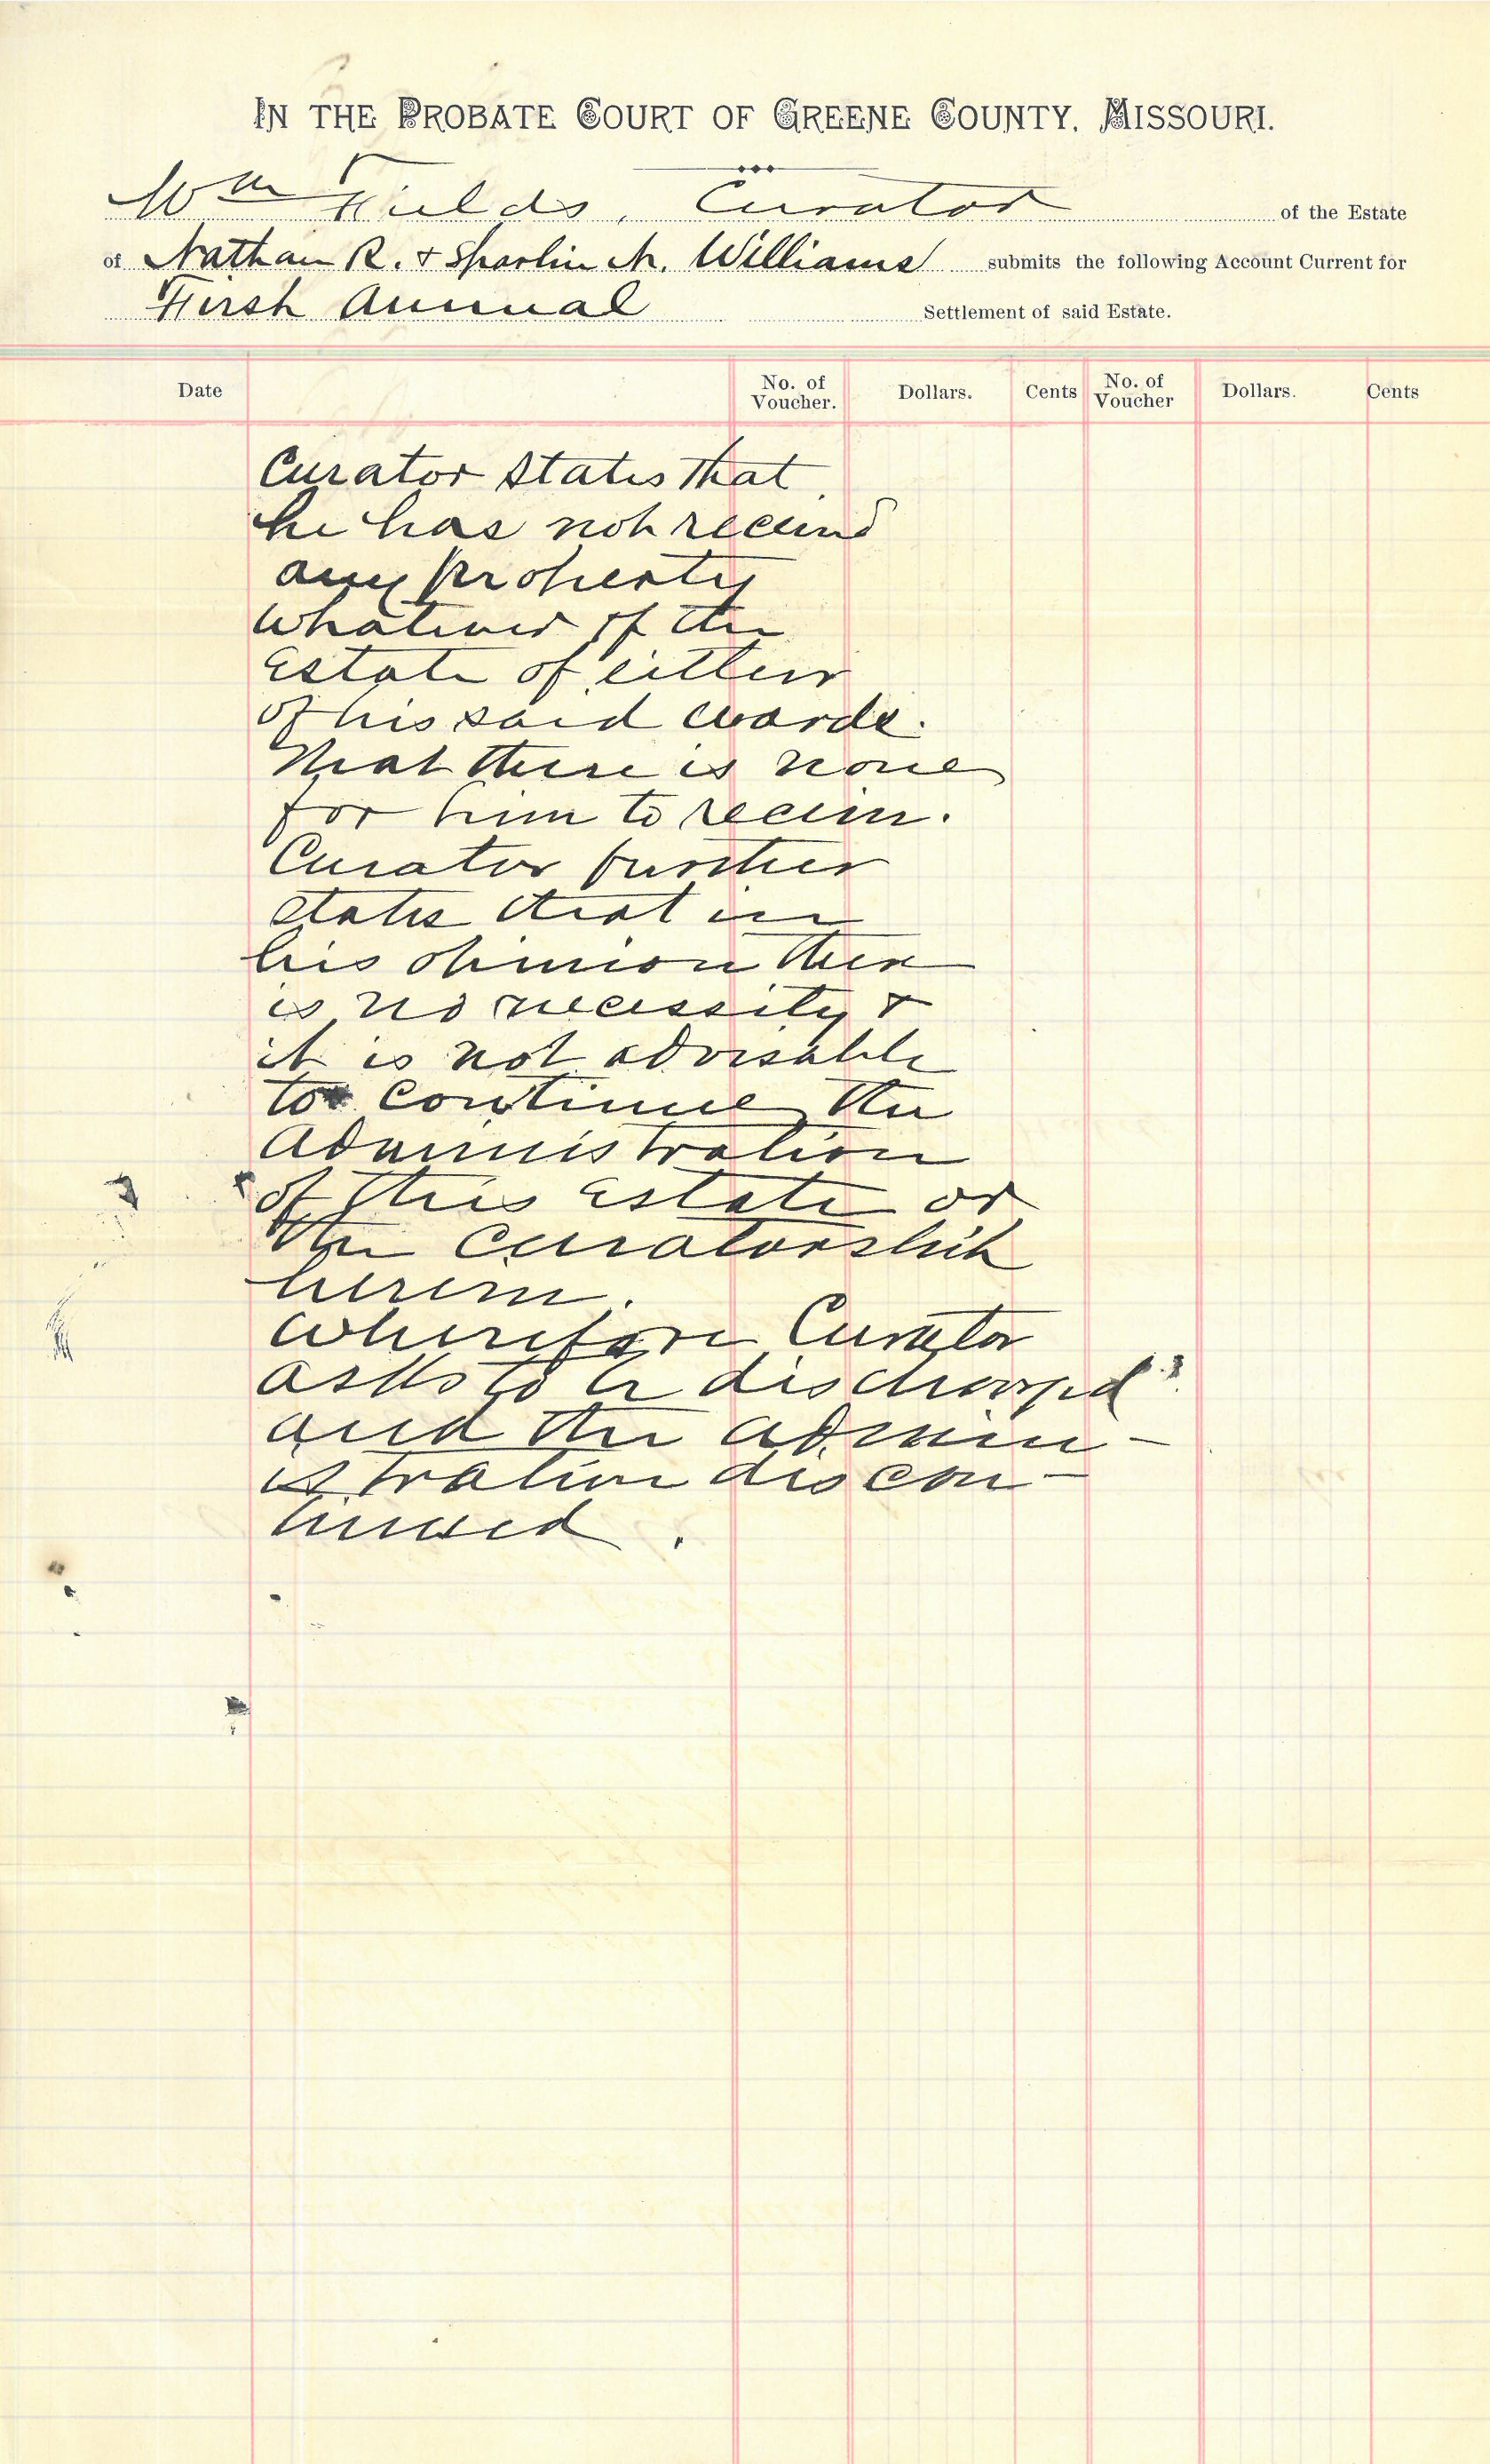 IN THE PROBATE COURT OF GREENE COUNTY, MISSOURI.
Wm Fields, Curator of the Estate
of Nathan R. & Sparlin M. Williams submits the following Account Current for
First Annual Settlement of said Estate.
Date No. of Voucher. Dollars. Cents No. of Voucher Dollars. Cents
Curator states that
he has not received
any property
whatever of the
Estate of either
of his said wards.
That there is none
for him to receive.
Curator further
states that in
his opinion there
is no necessity &
it is not advisable
to continue the
administration
of this Estate or
the curatorship
herein.
Wherefore Curator
asks to be discharged
and the admin-
istration discon-
tinued.